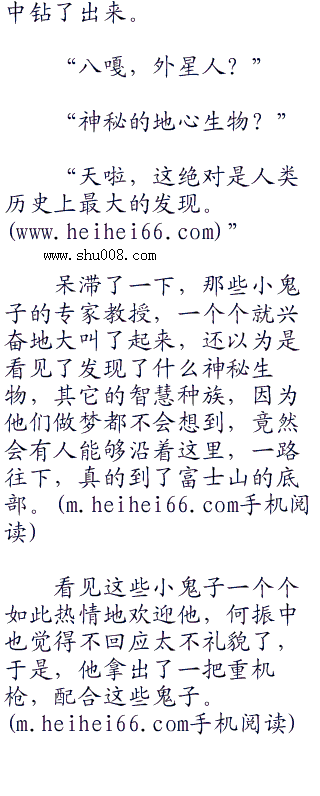 中钻了出来。
“八嘎，外星人？”
“神秘的地心生物？”
“天啦，这绝对是人类
历史上最大的发现。
(www.heihei66.com)”
www.shu008.com
呆滞了一下，那些小鬼
子的专家教授，一个个就兴
奋地大叫了起来，还以为是
看见了发现了什么神秘生
物，其它的智慧种族，因为
他们做梦都不会想到，竟然
会有人能够沿着这里，一路
往下，真的到了富士山的底
部。(m.heihei66.com手机阅
读)
看见这些小鬼子一个个
如此热情地欢迎他，何振中
也觉得不回应太不礼貌了，
于是，他拿出了一把重机
枪，配合这些鬼子。
(m.heihei66.com手机阅读)